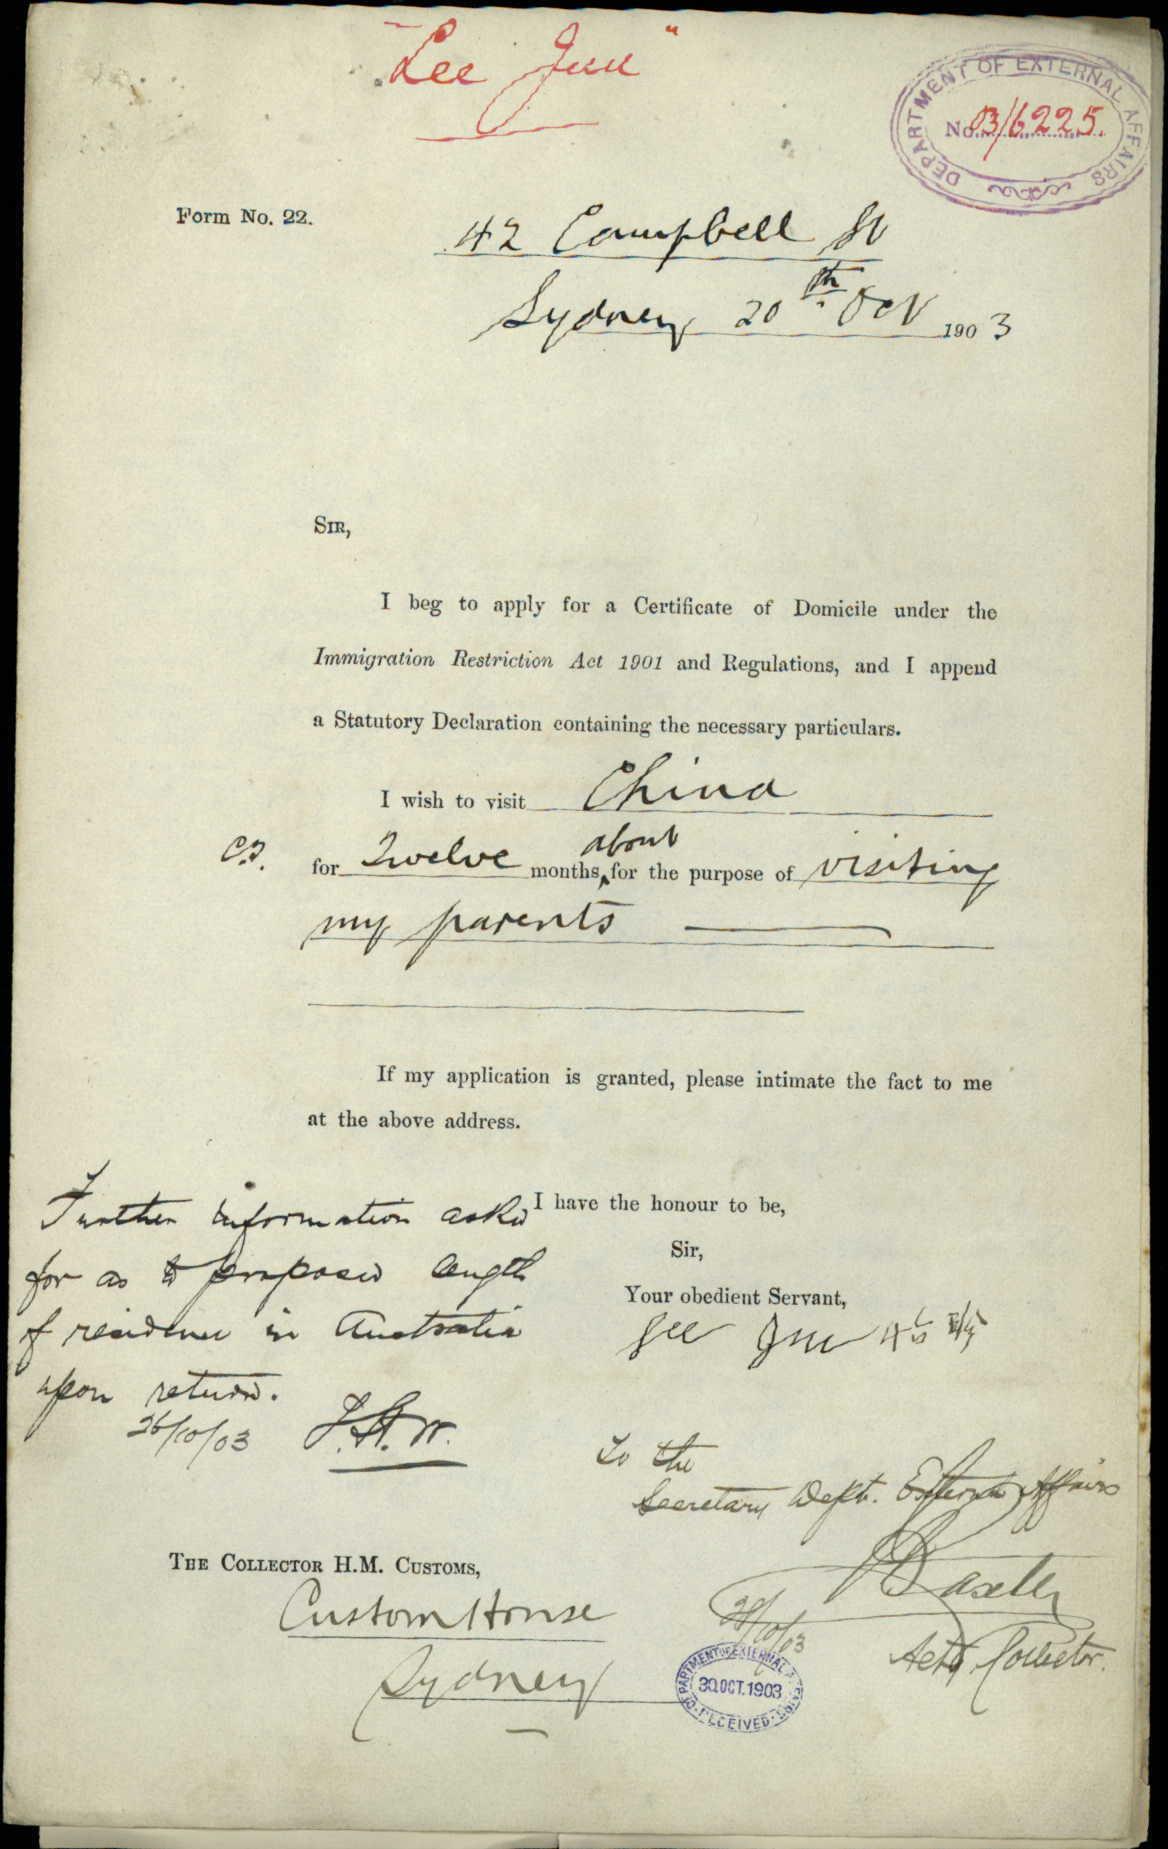 "Lee Jun"
DEPARTMENT OF EXTERNAL AFFAIRS
No. 03/6225.
Form No. 22.
42 Campbell St
Sydney 20th Oct 1903
SIR,
I beg to apply for a Certificate of Domicile under the
Immigration Restriction Act 1901 and Regulations, and I append
a Statutory Declaration containing the necessary particulars.
I wish to visit China
about
for Twelve months, for the purpose of visiting
my parents
If my application is granted, please intimate the fact to me
at the above address.
I have the honour to be,
Sir,
Your obedient Servant,
Further information asked
for as to proposed length
of residence in Australia
upon return.
26/10/03
To the
Secretary Dept. External Affairs
Actg Collector.
THE COLLECTOR H.M. CUSTOMS,
Custom House
Sydney
DEPARTMENT OF EXTERNAL AFFAIRS
30 OCT. 1903
RECEIVED